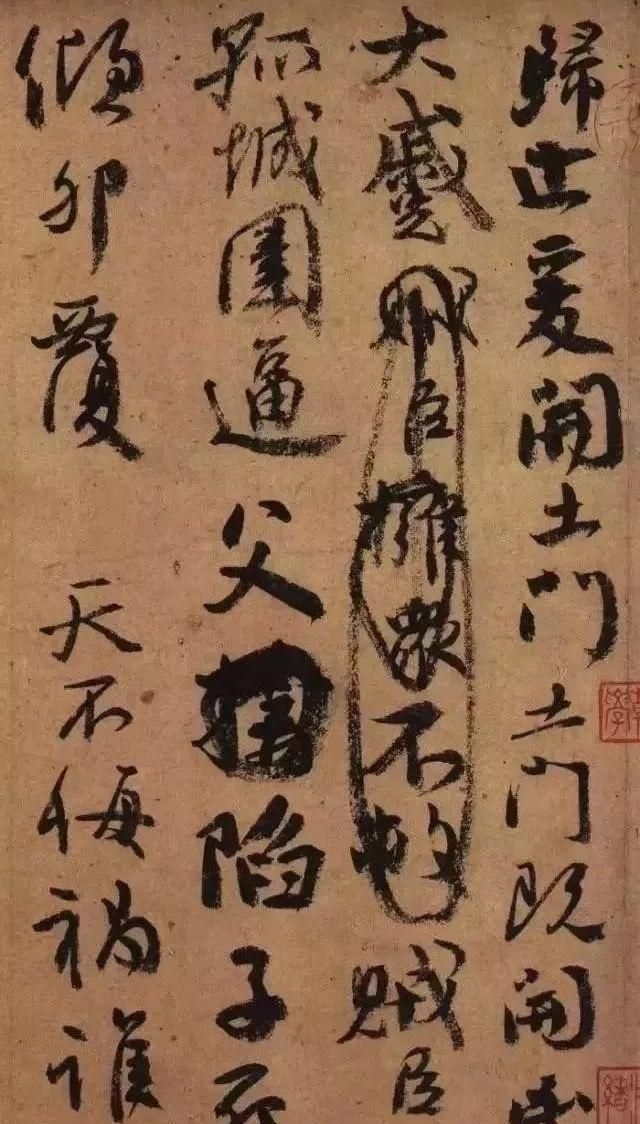 歸止爰開土門土門既開
大蹙賊臣擁衆不救賊臣
孤城圍逼父陷子死
傾卵覆 天不悔禍誰